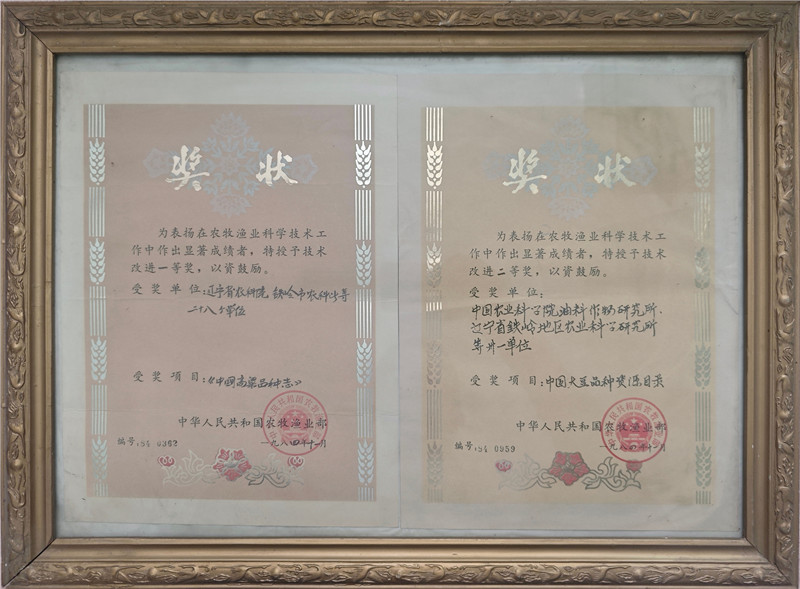 奖状
为表扬在农牧渔业科学技术工
作中作出显著成绩者，特授予技术
改进一等奖，以资鼓励。
受奖单位：辽宁省农科院 铁岭市农科所等
二十八个单位
受奖项目：《中国高粱品种志》
中华人民共和国农牧渔业部
编号：84 0362
一九八四年十一月
奖状
为表扬在农牧渔业科学技术工
作中作出显著成绩者，特授予技术
改进二等奖，以资鼓励。
受奖单位：
中国农业科学院油料作物研究所、
辽宁省铁岭地区农业科学研究所
等廿一单位
受奖项目：中国大豆品种资源目录
中华人民共和国农牧渔业部
编号：84 0959
一九八四年十一月